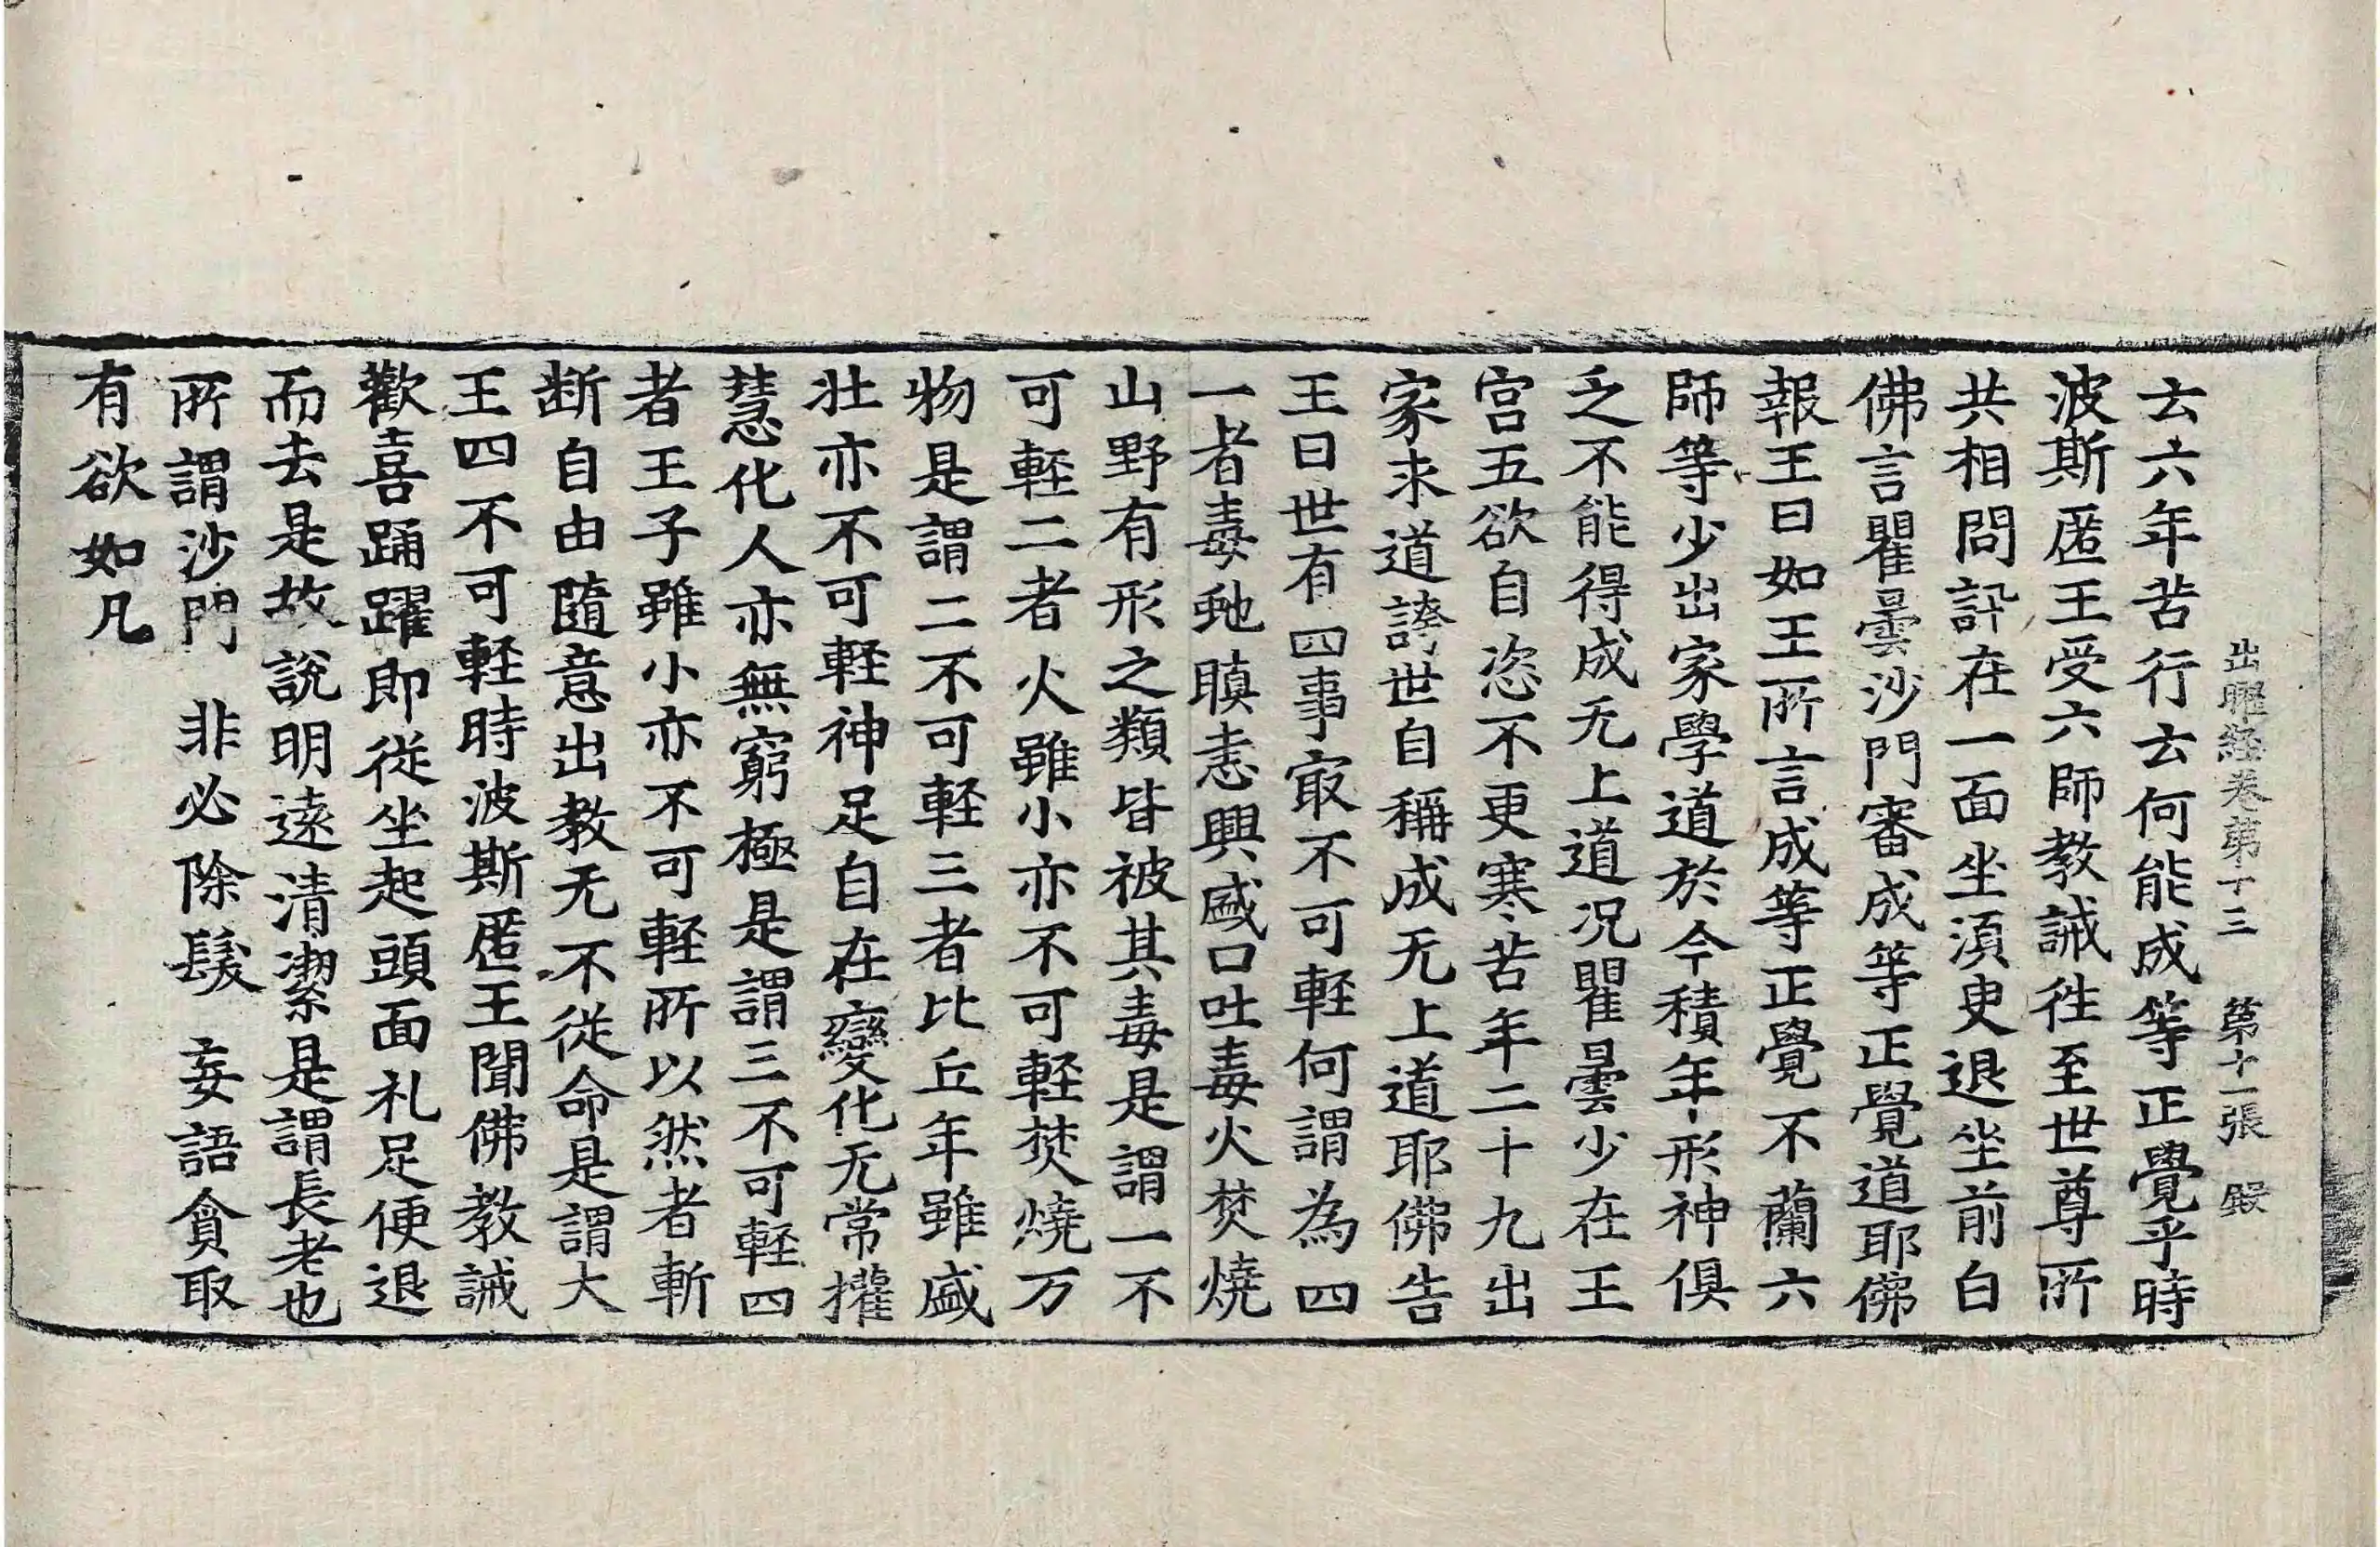 出曜経卷第十三 第十一張 㱾
去六年苦行云何能成等正覺乎時
波斯匿王受六師教誡徃至世尊所
共相問訊在一面坐湏臾退坐前白
佛言瞿曇沙門審成等正覺道耶佛
報王曰如王所言成等正覺不蘭六
師等少出家學道於今積年形神俱
乏不能得成无上道况瞿曇少在王
宮五欲自恣不更寒苦年二十九出
家求道誇世自稱成无上道耶佛告
王曰世有四事㝡不可軽何謂為四
一者毒虵瞋恚興盛口吐毒火焚燒
山野有形之類皆被其毒是謂一不
可軽二者火雖小亦不可軽焚燒万
物是謂二不可軽三者比丘年雖盛
壮亦不可軽神足自在變化无常攉
慧化人亦無窮極是謂三不可軽四
者王子雖小亦不可軽所以然者斬
断自由隨意出教无不從命是謂大
王四不可軽時波斯匿王聞佛教誡
歡喜踊躍即從坐起頭面礼足便退
而去是故說明遠清潔是謂長老也
所謂沙門 非必除髮 妄語貪取
有欲如凡